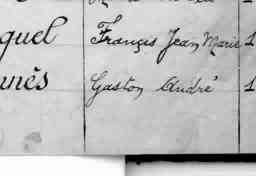 quel Françis Jean Marie 1
nnès Gaston André 1